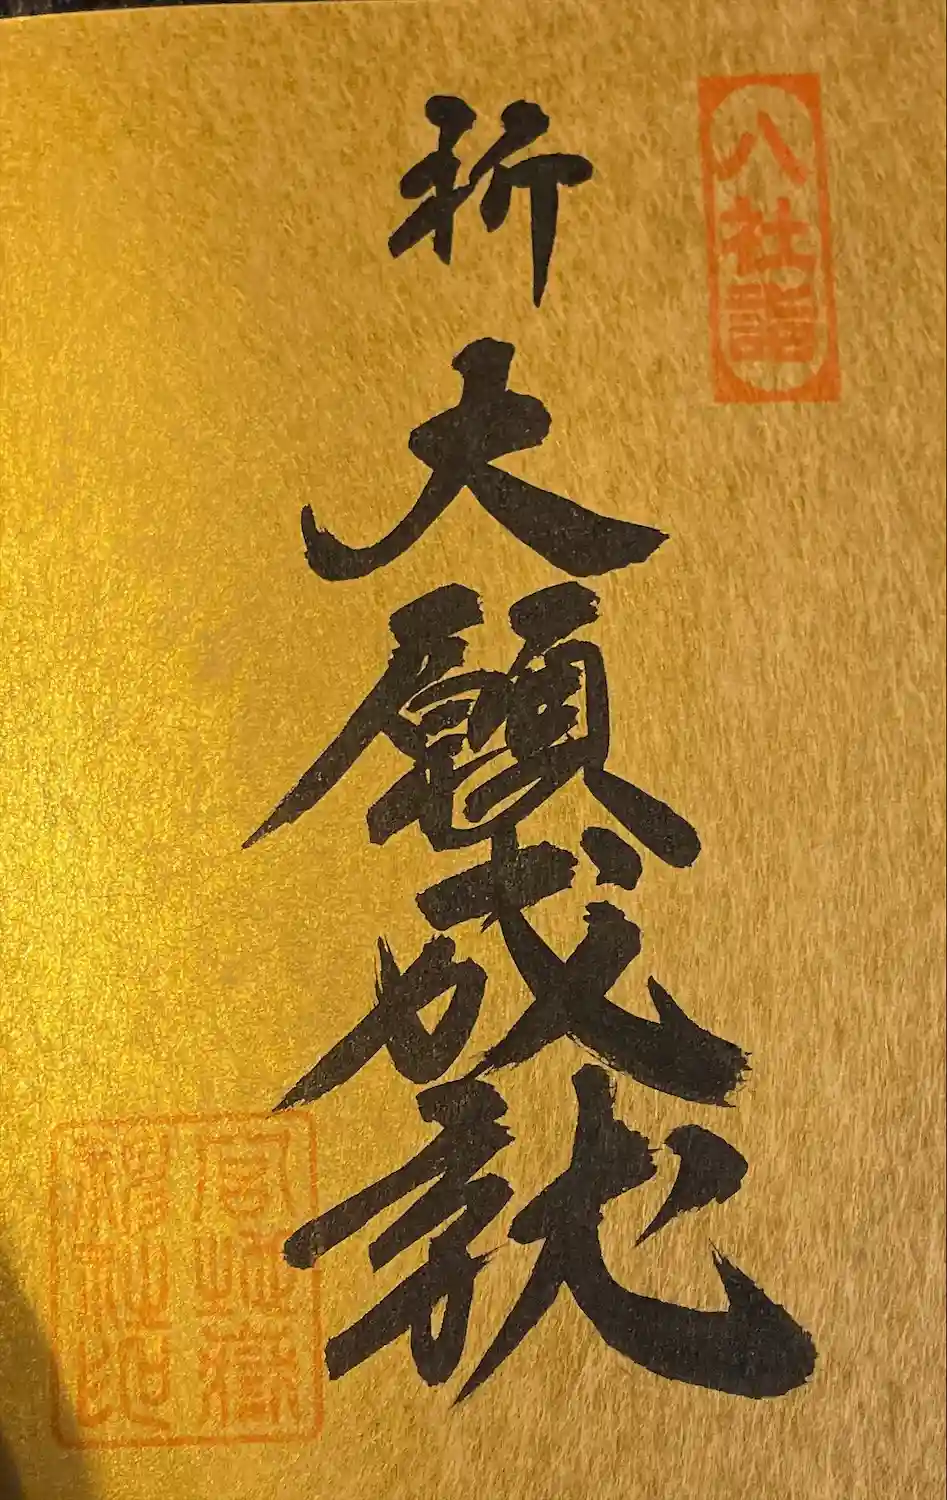 八社詣
祈
大願成就